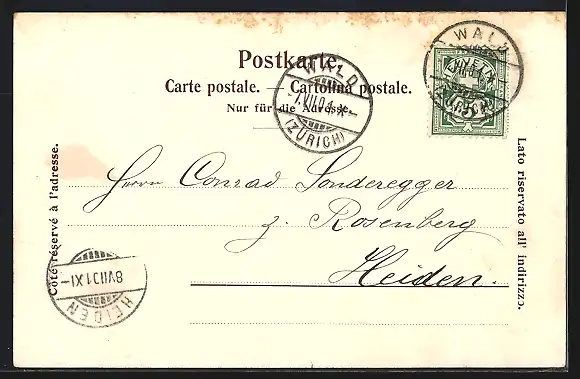 Postkarte.
Carte postale. — Cartolina postale.
Nur für die Adresse.
WALD
7.VII.01.X-
(ZÜRICH)
WALD
Côté réservé à l'adresse.
Lato riservato all' indirizzo.
Herrn Conrad Sonderegger
z. Rosenberg
Heiden.
8VII01XI-
HEIDEN